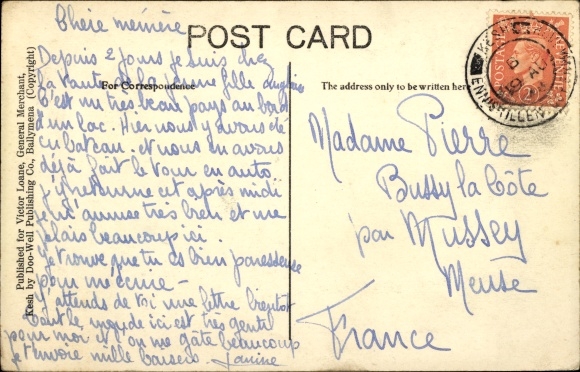 Chère mémère
POST CARD
Depuis 2 jours je suis chez
la tante de la jeune fille anglaise
For Correspondence
The address only to be written here
C'est un très beau pays au bord
d'un lac. Hier nous y avons été
en bateau. et nous en avons
déjà fait le tour en auto
cet après midi
je m'amuse très bien et me
plais beaucoup ici.
Je trouve que tu es bien paresseuse
pour m'écrire -
J'attends de toi une lettre bientôt
Tout le monde ici est très gentil
pour moi et l'on me gâte beaucoup
je t'envoie mille baisers. Janine
Madame Pierre
Bussy la Côte
par Mussey
Meuse
France
Published for Victor Loane, General Merchant,
Kesh by Doo-Well Publishing Co., Ballymena (Copyright)
POSTAGE REVENUE
KESH
ENNISKILLEN